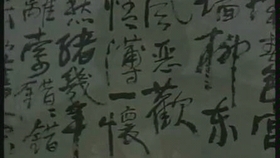 色宮
墻柳東
風惡歡
情薄一懷
愁緒幾年
離索錯錯